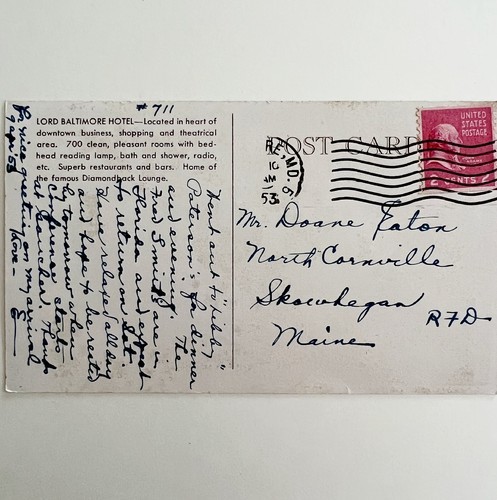 # 711
LORD BALTIMORE HOTEL—Located in heart of
downtown business, shopping and theatrical
area. 700 clean, pleasant rooms with bed-
head reading lamp, bath and shower, radio,
etc. Superb restaurants and bars. Home of
the famous Diamondback Lounge.
Went out to "Libby"
Paterson's for dinner
and evening. The
Fred Smiths are in
Florida and expect
to return on Sat.
Have relaxed all day
and hope to be rested
by tomorrow when
conference starts
at Thanks
for nice greeting on my arrival
Love — E
POST CARD
MD. 6
10
AM
53
UNITED
STATES
POSTAGE
2 CENTS 2
Mr. Doane Eaton
North Cornville
Skowhegan
R7D-
Maine